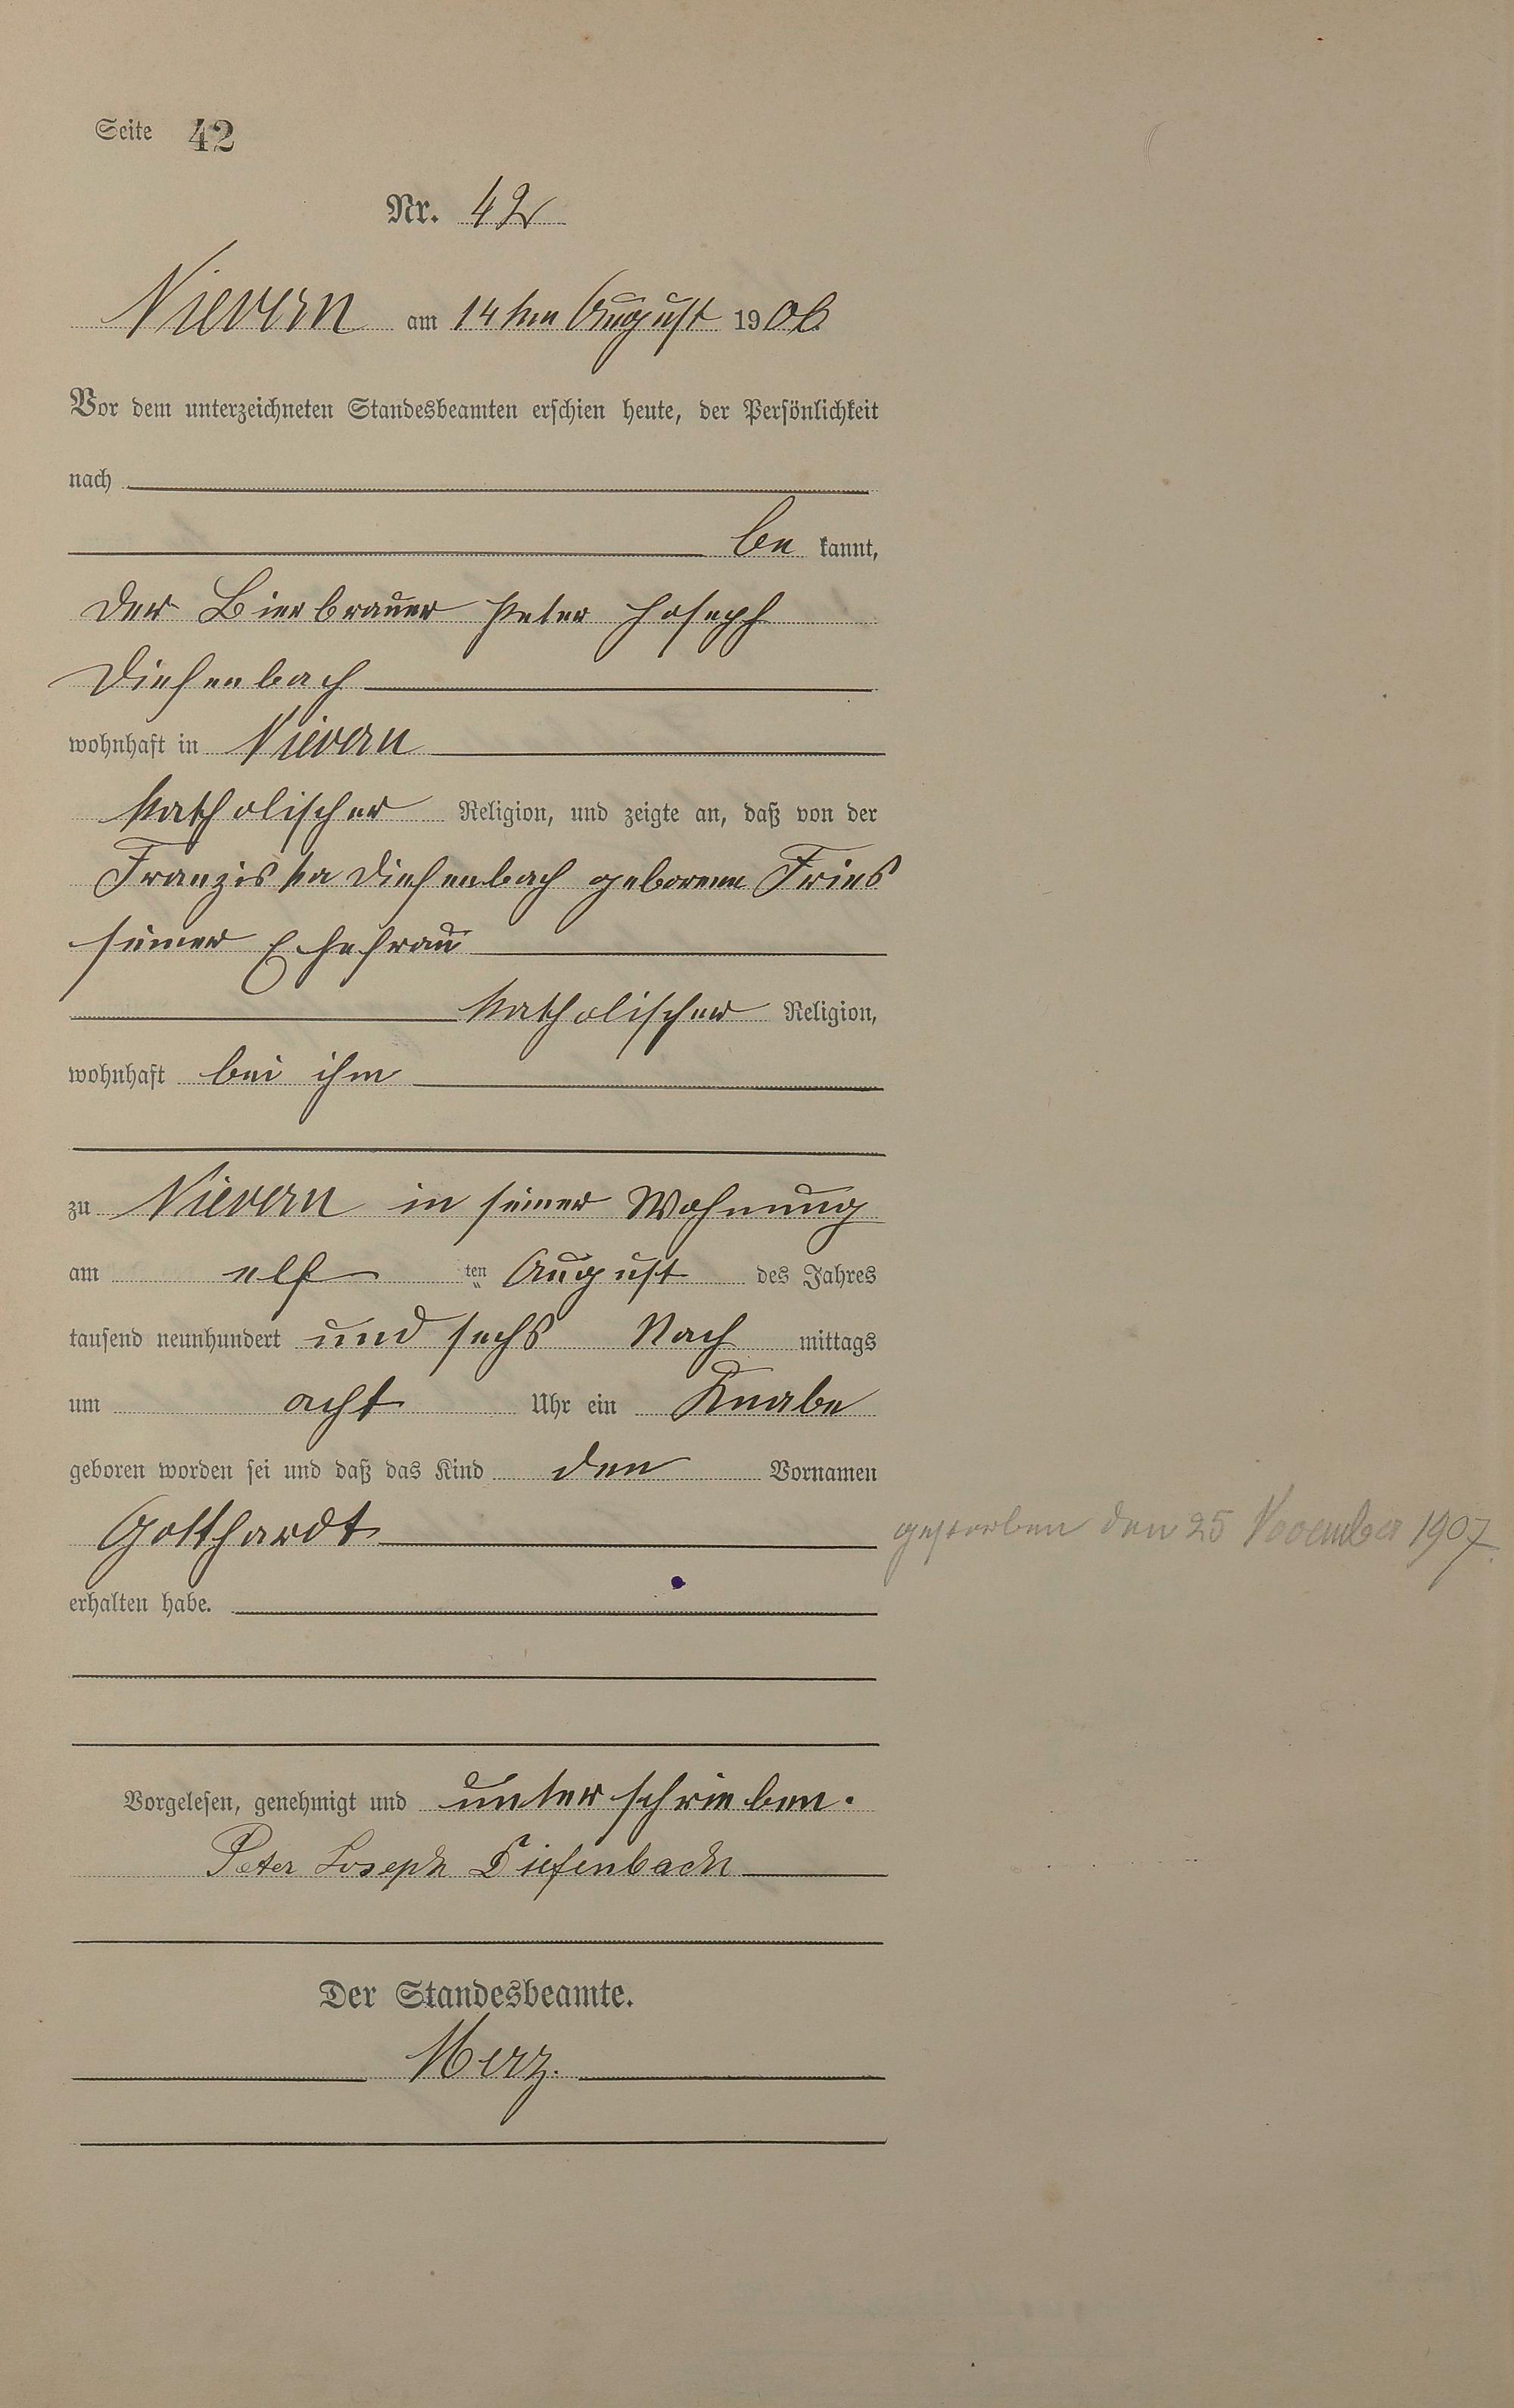 Seite 42
Nr. 42
Nievern am 14ten August 1906
Vor dem unterzeichneten Standesbeamten erschien heute, der Persönlichkeit
nach
be kannt,
der Bierbrauer Peter Joseph
Diefenbach
wohnhaft in Nievern
katholischer Religion, und zeigte an, daß von der
Franziska Diefenbach geborene Fries
seiner Ehefrau
katholischer Religion,
wohnhaft bei ihm
zu Nievern in seiner Wohnung
am elf ten August des Jahres
tausend neunhundert und sechs Nach mittags
um acht Uhr ein Knabe
geboren worden sei und daß das Kind den Vornamen
Gotthardt gestorben den 25 November 1907.
erhalten habe.
Vorgelesen, genehmigt und unterschrieben.
Peter Joseph Diefenbach
Der Standesbeamte.
Merz.